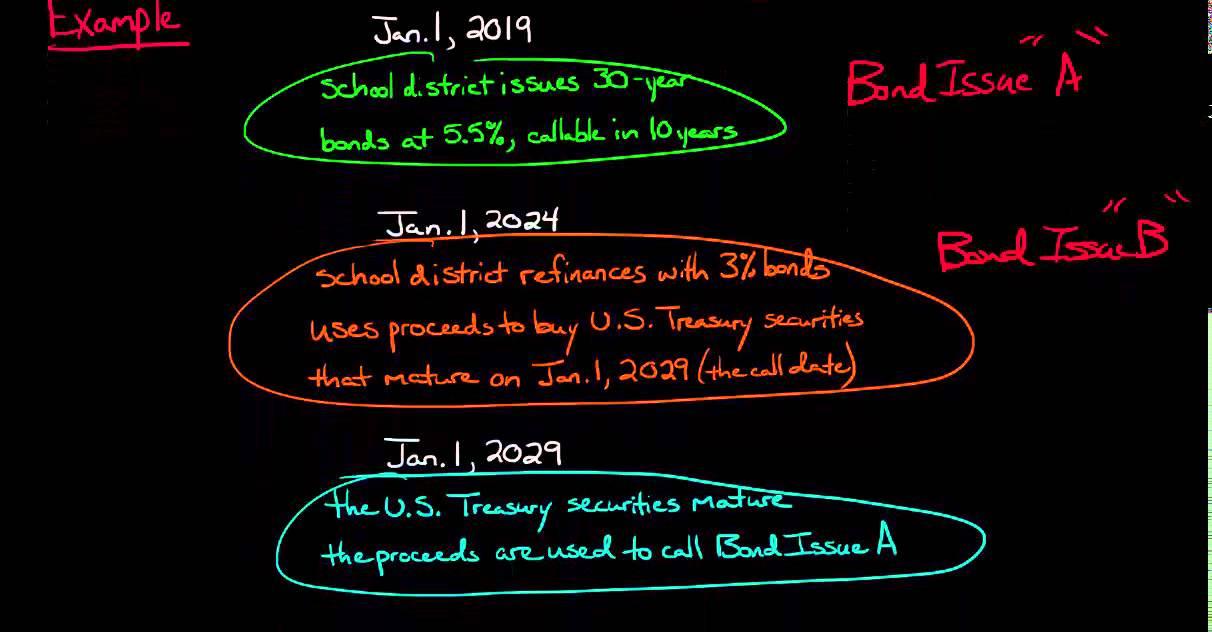 Example
Jan. 1, 2019
School district issues 30-year
bonds at 5.5%, callable in 10 years
Bond Issue "A"
Jan. 1, 2024
School district refinances with 3% bonds
uses proceeds to buy U.S. Treasury securities
that mature on Jan. 1, 2029 (the call date)
Bond Issue "B"
Jan. 1, 2029
the U.S. Treasury securities mature
the proceeds are used to call Bond Issue A